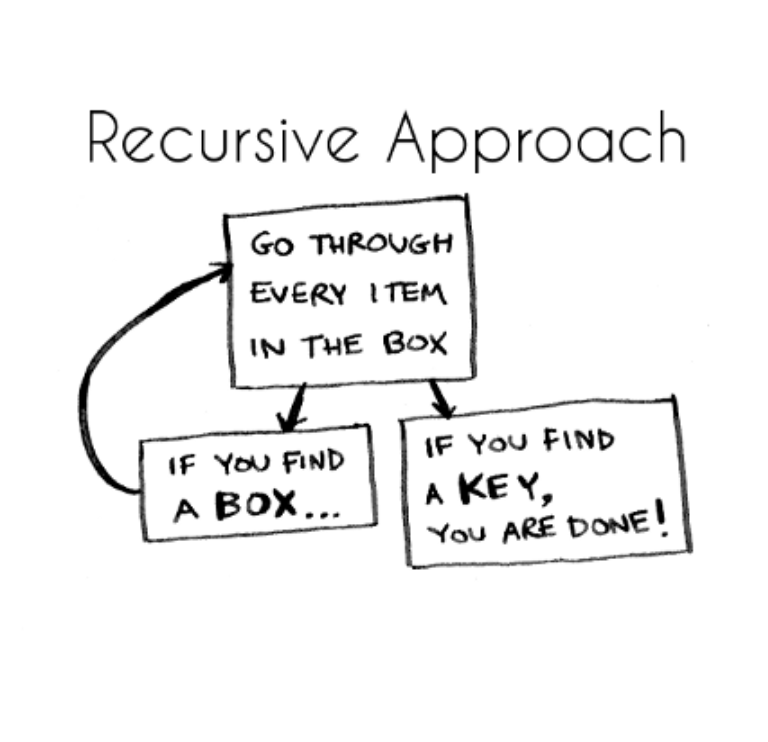 Recursive Approach
GO THROUGH
EVERY ITEM
IN THE BOX
IF YOU FIND
A BOX...
IF YOU FIND
A KEY,
YOU ARE DONE!